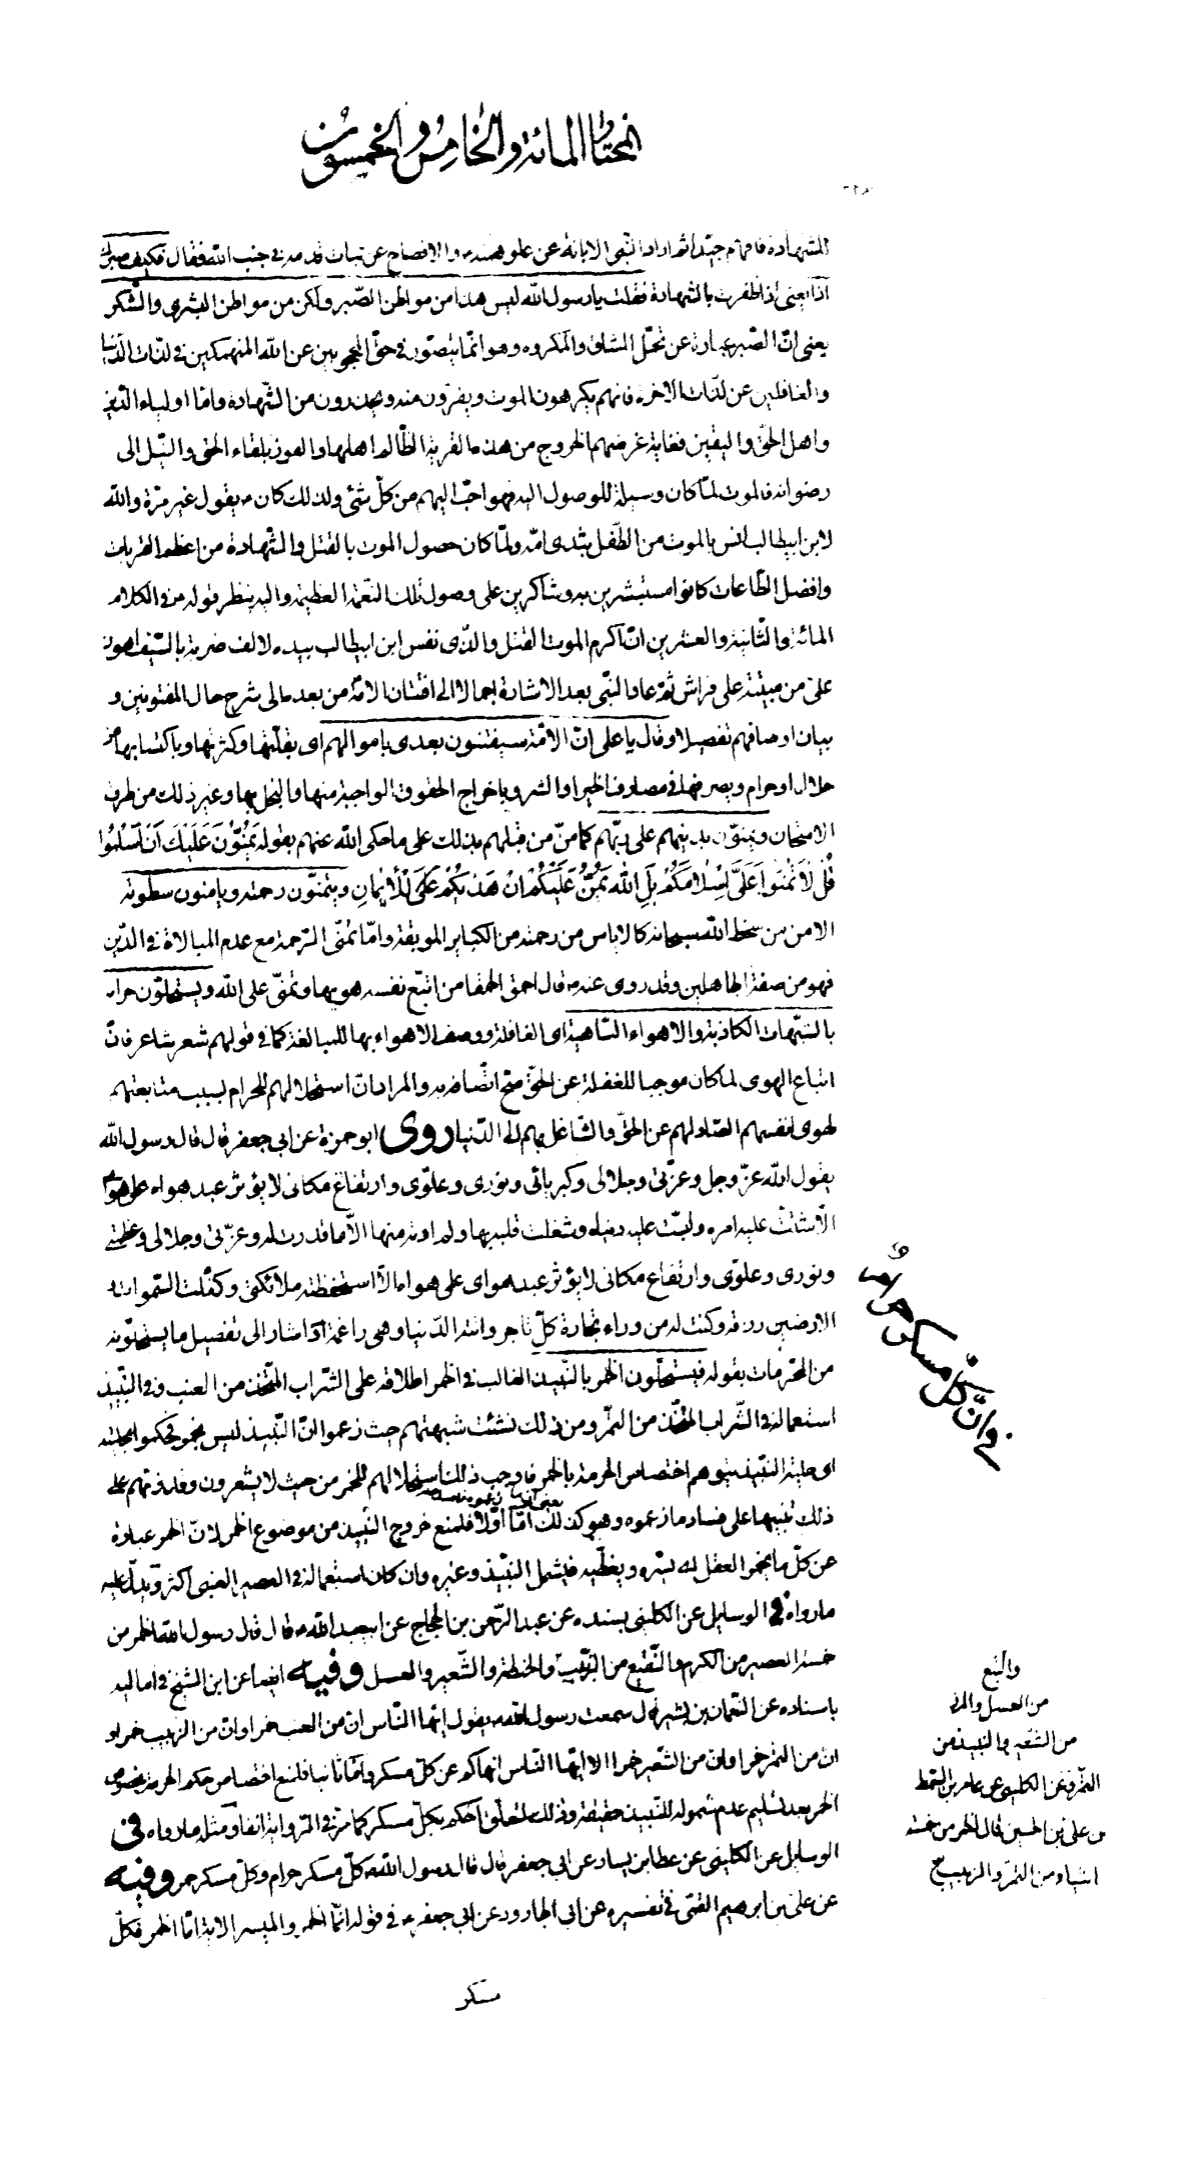 المختار المائة والخامس والخمسون
للشهادة فافهم جيّدا ثم اراد النبى الابانة عن علو همته والافصاح عن ثبات قدمه فى جنب الله فقال فكيف صبرك
اذا يعنى اذا ظفرت بالشهادة فقلت يا رسول الله ليس هذا من مواطن الصّبر ولكن من مواطن البشرى والشكر
يعنى انّ الصّبر عبارة عن تحمّل المشاق والمكروه وهو انّما يتصوّر فى حقّ المحجوبين عن الله المنهمكين فى لذّات الدّنيا
والغافلين عن لذّات الاخرة فانهم يكرهون الموت ويفرّون منه ويحذرون من الشّهادة وامّا اولياء الدّين
واهل الحقّ واليقين فغاية غرضهم الخروج من هذه القرية الظّالم اهلها والفوز بلقاء الحق والنّيل الى
رضوانه فالموت لمّا كان وسيلة للوصول اليه فهو احبّ اليهم من كلّ شئ ولذلك كان يقول غير مرّة والله
لابن ابيطالب انس بالموت من الطّفل بثدى امّه ولمّا كان حصول الموت بالقتل والشّهادة من اعظم القربات
وافضل الطّاعات كانوا مستبشرين به وشاكرين على وصول تلك النعمة العظيمة واليه ينظر قوله فى الكلام
المائة والثّانية والعشرين انّ اكرم الموت القتل والذّى نفس ابن ابيطالب بيده لالف ضربة بالسّيف اهون
علىّ من ميتة على فراش ثمّ عاد النّبى بعد الاشارة اجمالا الى افتتان الامّة من بعده الى شرح حال المفتونين و
بيان اوصافهم تفصيلا وقال يا على انّ الامّة سيفتنون بعدى باموالهم اى بقلّتها وكثرتها وباكتسابها من
حلال او حرام وبصرفها فى مصارف الخير او الشر وباخراج الحقوق الواجبة منها والبخل بها وغير ذلك من طرق
الامتحان ويمنّون بدينهم على ربّهم كما منّ من قبلهم بذلك على ما حكى الله عنهم بقوله يَمُنُّونَ عَلَيْكَ اَنْ اَسْلَمُوا
قُلْ لا تَمُنّوا عَلَىَّ اِسْلامَكُمْ بَلِ اللهُ يَمُنُّ عَلَيْكُمْ اَنْ هَدٰيكُمْ لِلْاِيمانِ ويتمنّون رحمته ويامنون سطوته
الامن من سخط الله سبحانه كالاياس من رحمته من الكباير الموبقة وامّا تمنّى الرّحمة مع عدم المبالاة فى الدّين
فهو من صفة الجاهلين وقد روى عنه قال احمق الحمقا من اتبع نفسه هويها وتمنّى على الله ويستحلّون حرامه
بالشبهات الكاذبة والاهواء السّاهية اى الغافلة ووصف الاهواء بها للمبالغة كما فى قولهم شعر شاعر فانّ
اتباع الهوى لما كان موجبا للغفلة عن الحقّ صحّ اتّصافه به والمراد انّ استحلالهم للحرام بسبب متابعتهم
لهوى انفسهم الصّاد لهم عن الحقّ والشّاغل بهم الى الدّنيا روى ابو حمزة عن ابى جعفر قال قال رسول الله
يقول الله عزّ وجل وعزّتى وجلالى وكبريائى ونورى وعلوّى وارتفاع مكانى لا يؤثر عبد هواه على هواى
الّا شتّتّ عليه امره ولبّست عليه دنياه وشغلت قلبه بها ولم اوته منها الّا ما قدرت له وعزّتى وجلالى وعظمتى
ونورى وعلوّى وارتفاع مكانى لا يؤثر عبد هواى على هواه الّا استحفظته ملائكتى وكفّلت السّموات و
الارضين رزقه وكنت له من وراء تجارة كلّ تاجر واتته الدّنيا وهى راغمة ثمّ اشار الى تفصيل ما يستحلّونه
من المحرّمات بقوله فيستحلّون الخمر بالنّبيذ الغالب فى الخمر اطلاقه على الشّراب المتّخذ من العنب وفى النّبيذ
استعماله فى الشّراب المتّخذ من التمر ومن ذلك نشئت شبهتهم حيث زعموا انّ النّبيذ ليس بخمر فحكموا بحلّيته
اى حلية النّبيذ بتوهم اختصاص الحرمة بالخمر فاوجب ذلك استحلالهم للخمر من حيث لا يشعرون وقد ذمّهم على
ذلك تنبيها على فساد ما زعموه وهو كذلك امّا اوّلا فلمنع خروج النّبيذ من موضوع الخمر لانّ الخمر عبارة
عن كلّ ما يخمر العقل اى يستره ويغطّيه فيشمل النّبيذ وغيره وان كان استعماله فى العصير العنبى اكثر ويدلّ عليه
مارواه فى الوسايل عن الكلينى بسنده عن عبد الرّحمن بن الحجاج عن ابيعبد الله قال قال رسول الله الخمر من
خمسة العصير من الكرم والنّقيع من الزّبيب والحنطة والشّعير والعسل وفيه ايضا عن ابن الشيخ فى اماليه
باسناده عن النّعمان بن بشير قال سمعت رسول الله يقول ايّها النّاس انّ من العنب خمرا وانّ من الزبيب خمرا و
انّ من التمر خمرا وانّ من الشّعير خمرا الا ايّها النّاس انهاكم عن كلّ مسكر وامّا ثانيا فلمنع اختصاص حكم الحرمة بخصوص
الخمر بعد تسليم عدم شموله للنّبيذ حقيقة وذلك لتعلّق الحكم بكلّ مسكر كما مرّ فى الرّواية انفا ومثله مارواه فى
الوسايل عن الكلينى عن عطا بن يسار عن ابى جعفر قال قال رسول الله كلّ مسكر حرام وكلّ مسكر خمر وفيه
عن على بن ابرهيم القمّى فى تفسيره عن ابى الجارود عن ابى جعفر فى قوله انّما الخمر والميسر الاية امّا الخمر فكلّ
مسكر
وانّ كلّ مسكر حرام
والبتع
من العسل والمزر
من الشّعير والنّبيذ من
التّمر وعن الكلينى عن عامر بن السّمط
عن على بن الحسين قال الخمر من خمسة
اشياء من التّمر والزبيب